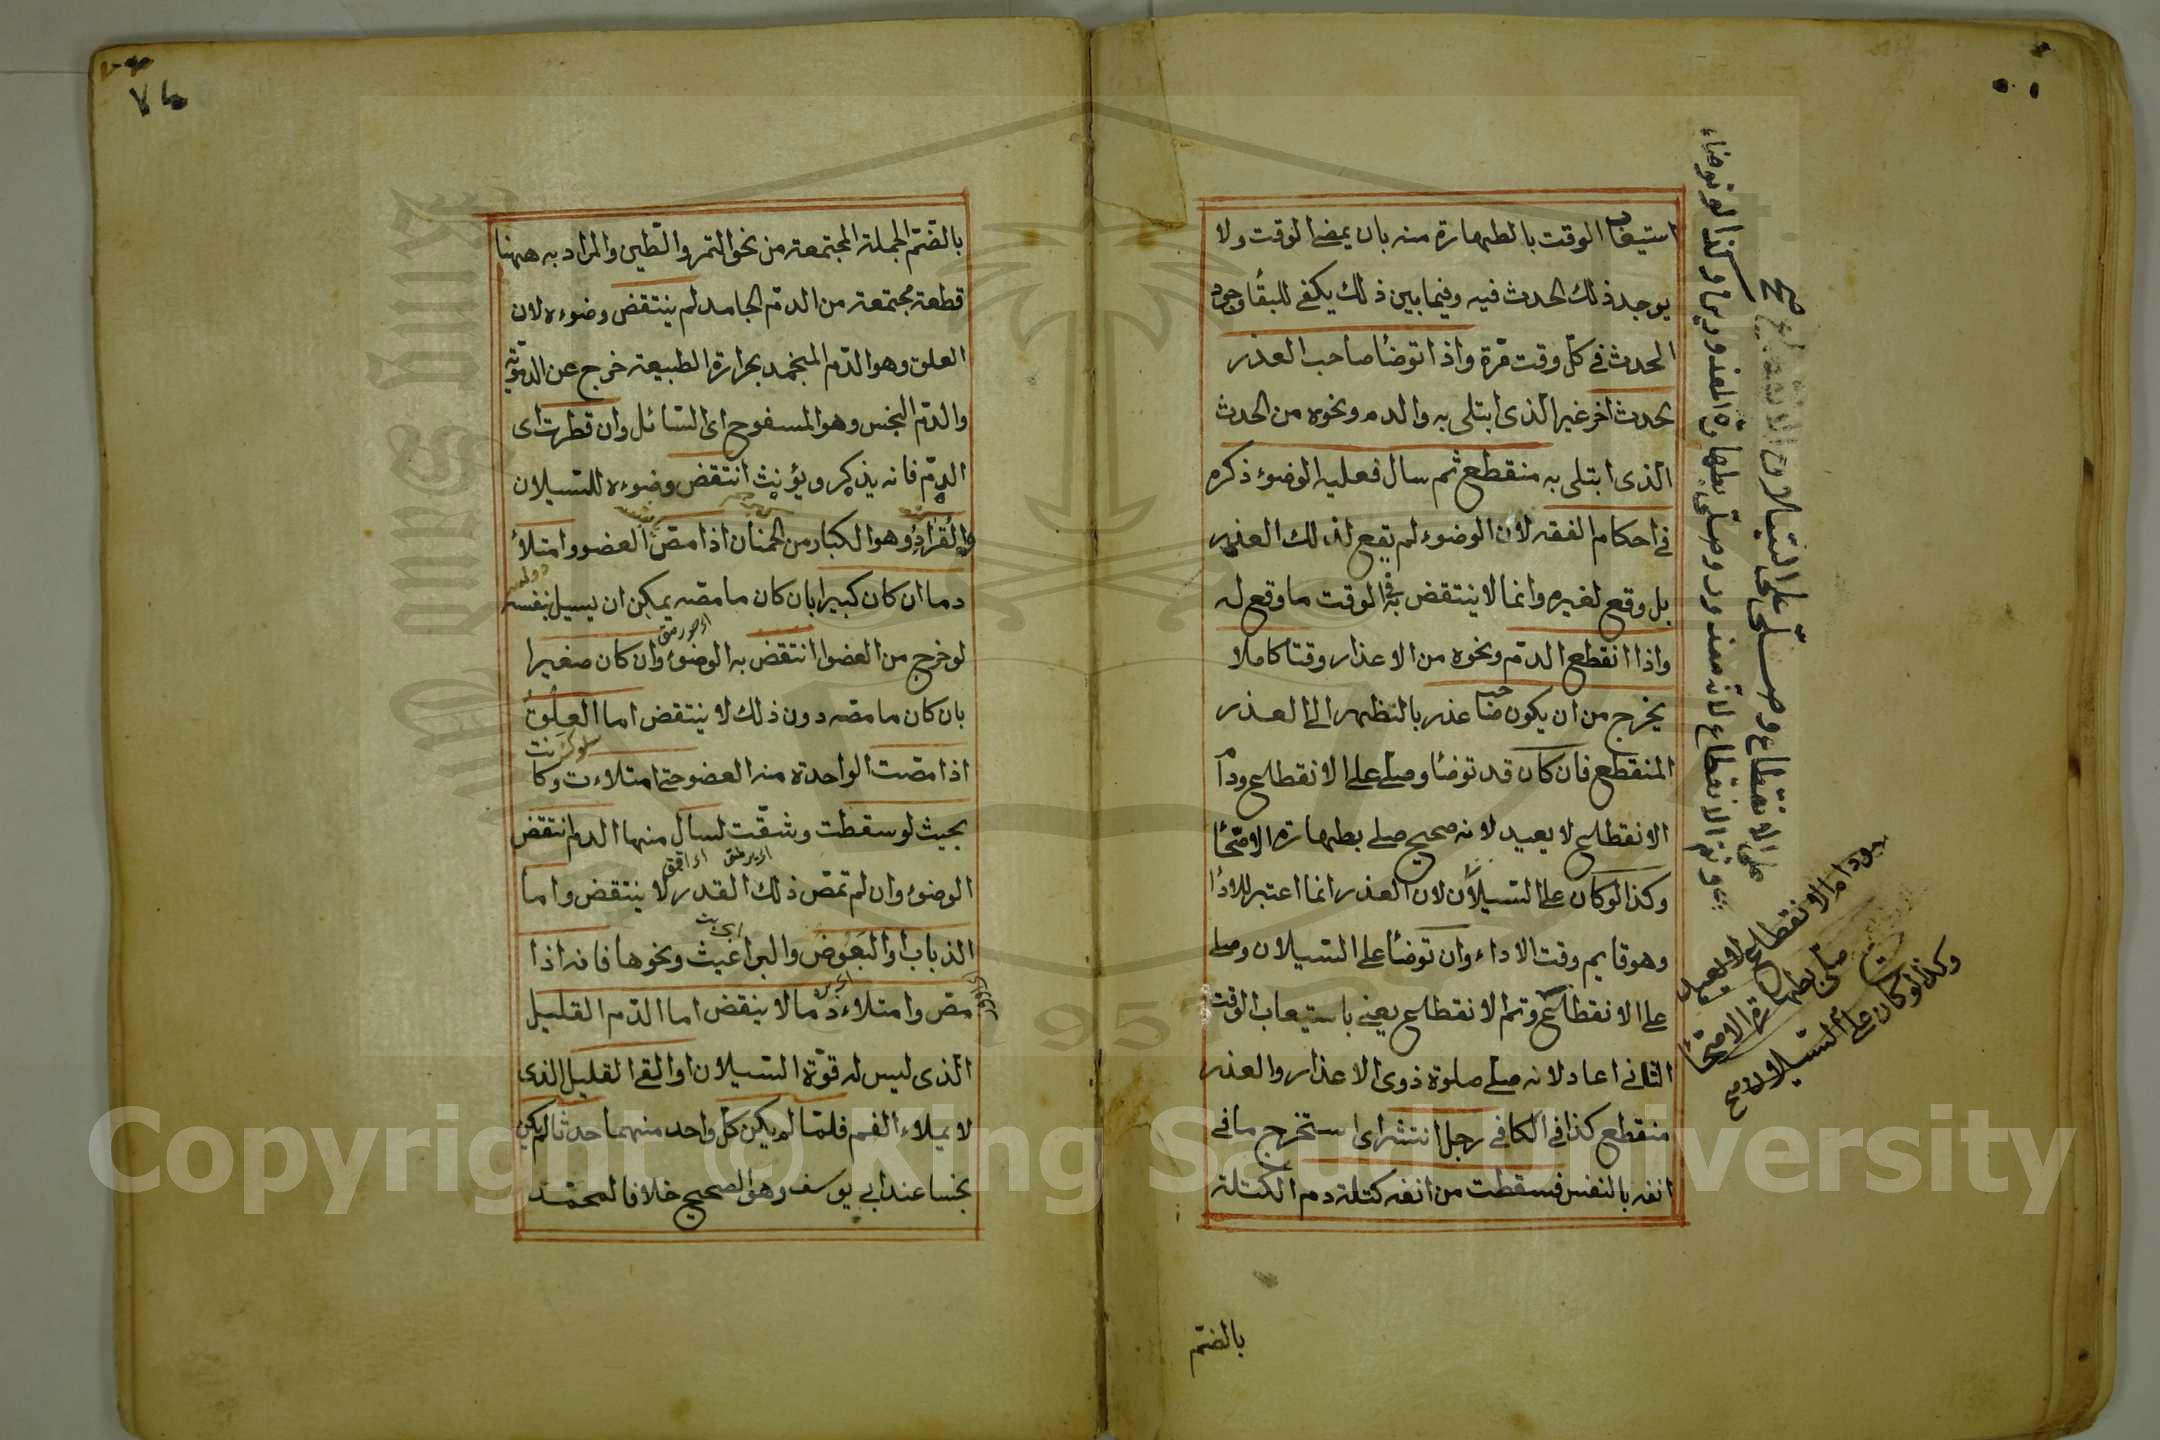 استيعاب الوقت بالطهارة منه بان يمضي الوقت ولا
يوجد ذلك الحدث فيه وفيما بين ذلك يكفي للبقا وجود
الحدث في كل وقت مرة واذا توضا صاحب العذر
بحدث اخر غير الذى ابتلى به والدم ونحوه من الحدث
الذى ابتلى به منقطع ثم سال فعليه الوضوء ذكره
في احكام الفقه لان الوضوء لم يقع لذلك العذر
بل وقع لغيره وانما لا ينتقض به في الوقت ما وقع له
واذا انقطع الدم ونحوه من الاعذار وقتا كاملا
يخرج من ان يكون صاحب عذر بالنظر الى العذر
المنقطع فان كان قد توضا وصلى على الانقطاع ودام
الانقطاع لا يعيد لانه صحيح صلى بطهارة الاصحا
وكذا لو كان على السيلان لان العذر انما اعتبر للادا
وهو قايم وقت الاداء وان توضا على السيلان وصلى
على الانقطاع وتم الانقطاع يعنى باستيعاب الوقت
الثانى اعاد لانه صلى صلوة ذوى الاعذار والعذر
منقطع كذا في الكافي رجل انتثر اى استخرج ما في
انفه بالنفس فسقطت من انفه كتلة دم الكتلة
بالضم
وكذا لو توضاء
على السيلان وصلى
على الانقطاع
ودام الانقطاع لا يعيد
صلى بطهارة الاصحاء
وكذا لو كان على السيلان صح
٧٤
بالضم الجملة المجتمعة من نحو التمر والطين والمراد به ههنا
قطعة مجتمعة من الدم الجامد لم ينتقض وضوءه لان
العلق وهو الدم المنجمد بحرارة الطبيعة خرج عن الدموية
والدم النجس وهو المسفوح اى السائل وان قطرت اى
الدم فانه يذكر ويؤنث انتقض وضوءه للسيلان
والقراد وهو الكبار من الحمنان اذا مص العضو وامتلأ
دما ان كان كبيرا بان كان ما مصه يمكن ان يسيل بنفسه
لو خرج من العضو انتقض به الوضوء وان كان صغيرا
بان كان ما مصه دون ذلك لا ينتقض اما العلق
اذا مصت الواحدة منه العضو حتى امتلاءت وكا
بحيث لو سقطت وشقت لسال منها الدم انتقض
الوضوء وان لم تمص ذلك القدر لا ينتقض واما
الذباب والبعوض والبراغيث ونحوها فانه اذا
مص وامتلاء دما لا ينقض اما الدم القليل
الذى ليس له قوة السيلان او القى القليل الذى
لا يملاء الفم فلما لم يكن كل واحد منهما حدثا لم يكن
نجسا عند ابي يوسف وهو الصحيح خلافا لمحمد
Copyright © King Saud University